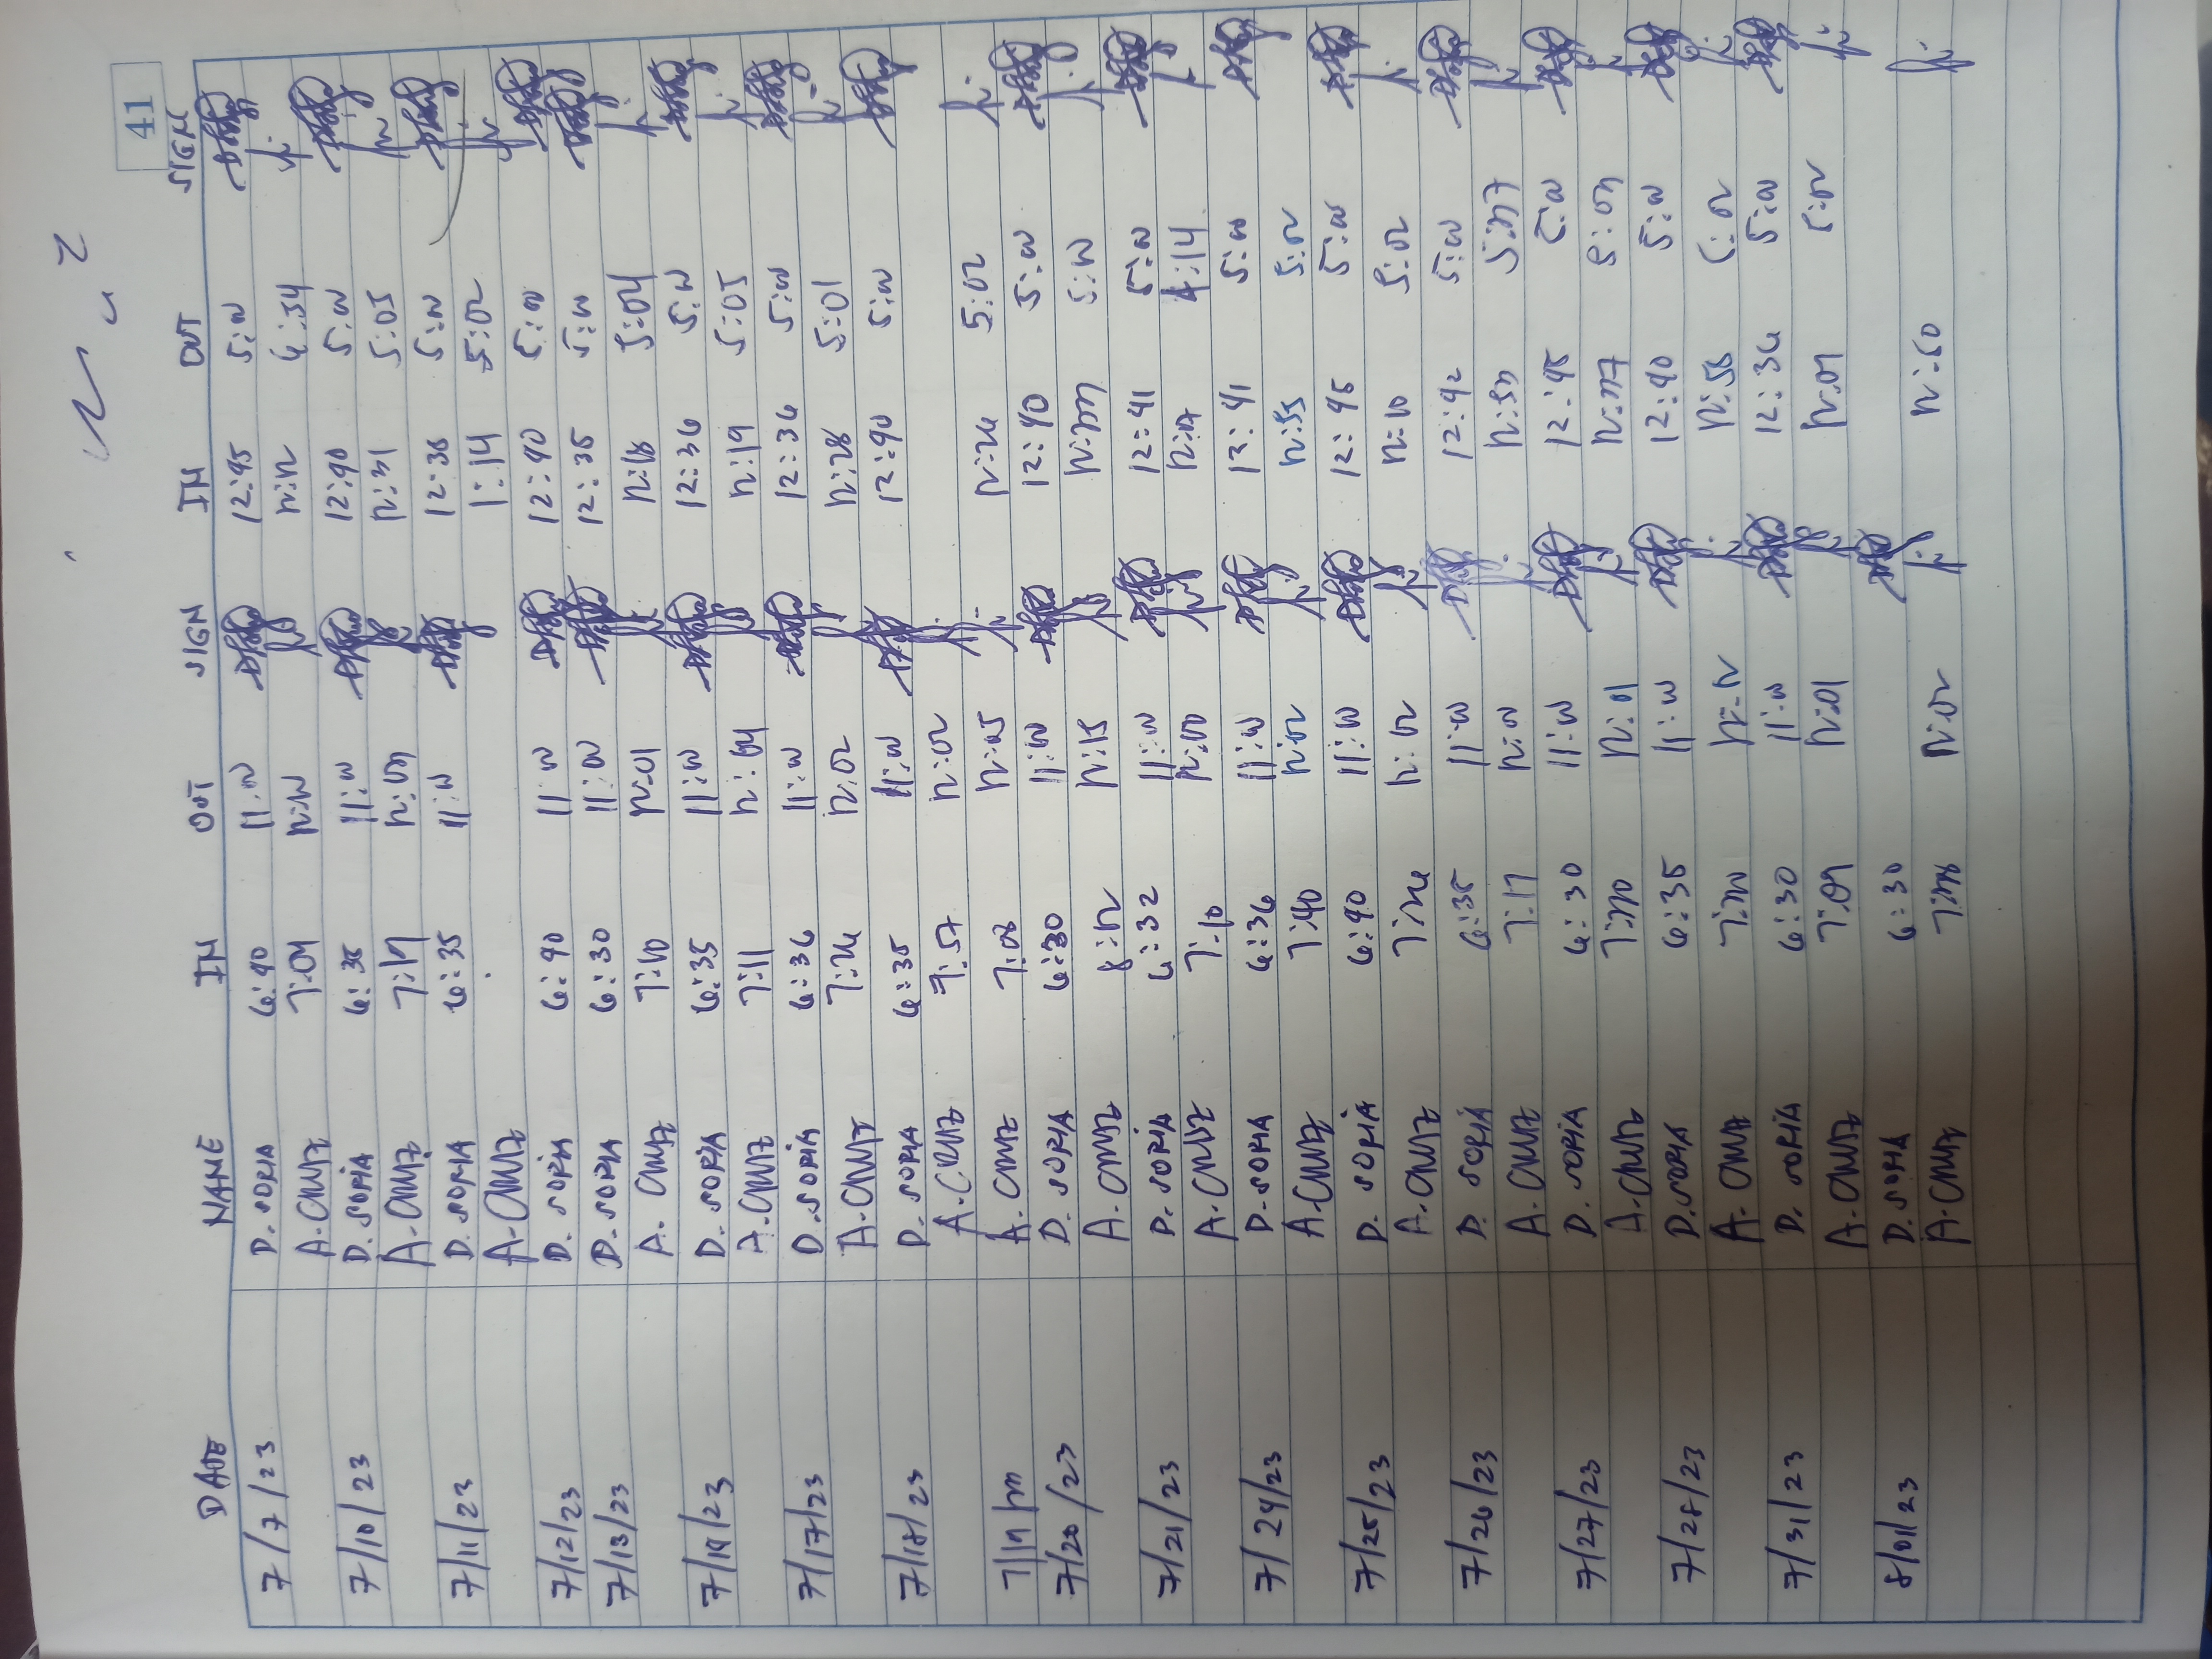 41
DATE NAME IN OUT SIGN IN OUT SIGN
7/7/23 D. SORIA 6:40 11:00 12:45 5:00
A. CRUZ 7:04 12:00 12:12 4:34
7/10/23 D. SORIA 6:35 11:00 12:40 5:00
A. CRUZ 7:19 12:03 12:31 5:05
7/11/23 D. SORIA 6:35 11:00 12:38 5:00
A. CRUZ 1:14 5:02
7/12/23 D. SORIA 6:40 11:00 12:40 5:00
7/13/23 D. SORIA 6:30 11:00 12:35 5:00
A. CRUZ 7:10 12:01 12:18 5:04
7/14/23 D. SORIA 6:35 11:00 12:36 5:00
A. CRUZ 7:11 12:04 12:19 5:05
7/17/23 D. SORIA 6:36 11:00 12:36 5:00
A. CRUZ 7:26 12:02 12:28 5:01
7/18/23 D. SORIA 6:35 11:00 12:40 5:00
A. CRUZ 7:57 12:02
7/19/23 A. CRUZ 7:08 12:05 12:26 5:02
7/20/23 D. SORIA 6:30 11:00 12:40 5:00
A. CRUZ 8:12 12:15 5:00
7/21/23 D. SORIA 6:32 11:00 12:41 5:00
A. CRUZ 7:10 12:00 4:14
7/24/23 D. SORIA 6:36 11:00 12:41 5:00
A. CRUZ 7:40 12:02 12:55 5:02
7/25/23 D. SORIA 6:40 11:00 12:45 5:00
A. CRUZ 12:02 12:10 5:02
7/26/23 D. SORIA 6:35 11:00 12:42 5:00
A. CRUZ 7:17 12:00
7/27/23 D. SORIA 6:30 11:00 12:45 5:00
A. CRUZ 12:01 5:03
7/28/23 D. SORIA 6:35 11:00 12:40 5:00
A. CRUZ 12:12 12:58 5:02
7/31/23 D. SORIA 6:30 11:00 12:36 5:00
A. CRUZ 7:09 12:01 12:09 5:02
8/01/23 D. SORIA 6:30
A. CRUZ 12:02 12:50